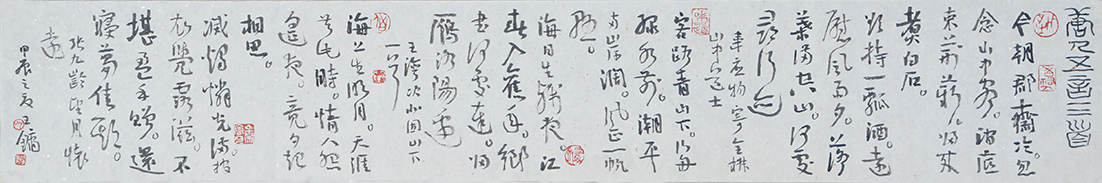 唐人五言三首
今朝郡齋冷。忽
念山中客。澗底
束荊薪。歸來
煮白石。
欲持一瓢酒。遠
慰風雨夕。落
葉滿空山。何處
尋行迹
韋應物寄全椒
山中道士
客路青山下。行舟
綠水前。潮平
兩岸闊。風正一帆
懸。
海日生殘夜。江
春入舊年。鄉
書何處達。歸
雁洛陽邊
王灣次北固山下
一首
海上生明月。天涯
共此時。情人怨
遙夜。竟夕起
相思。
滅燭憐光滿。披
衣覺露滋。不
堪盈手贈。還
寢夢佳期。
張九齡望月懷
遠
甲辰之夏王鏞